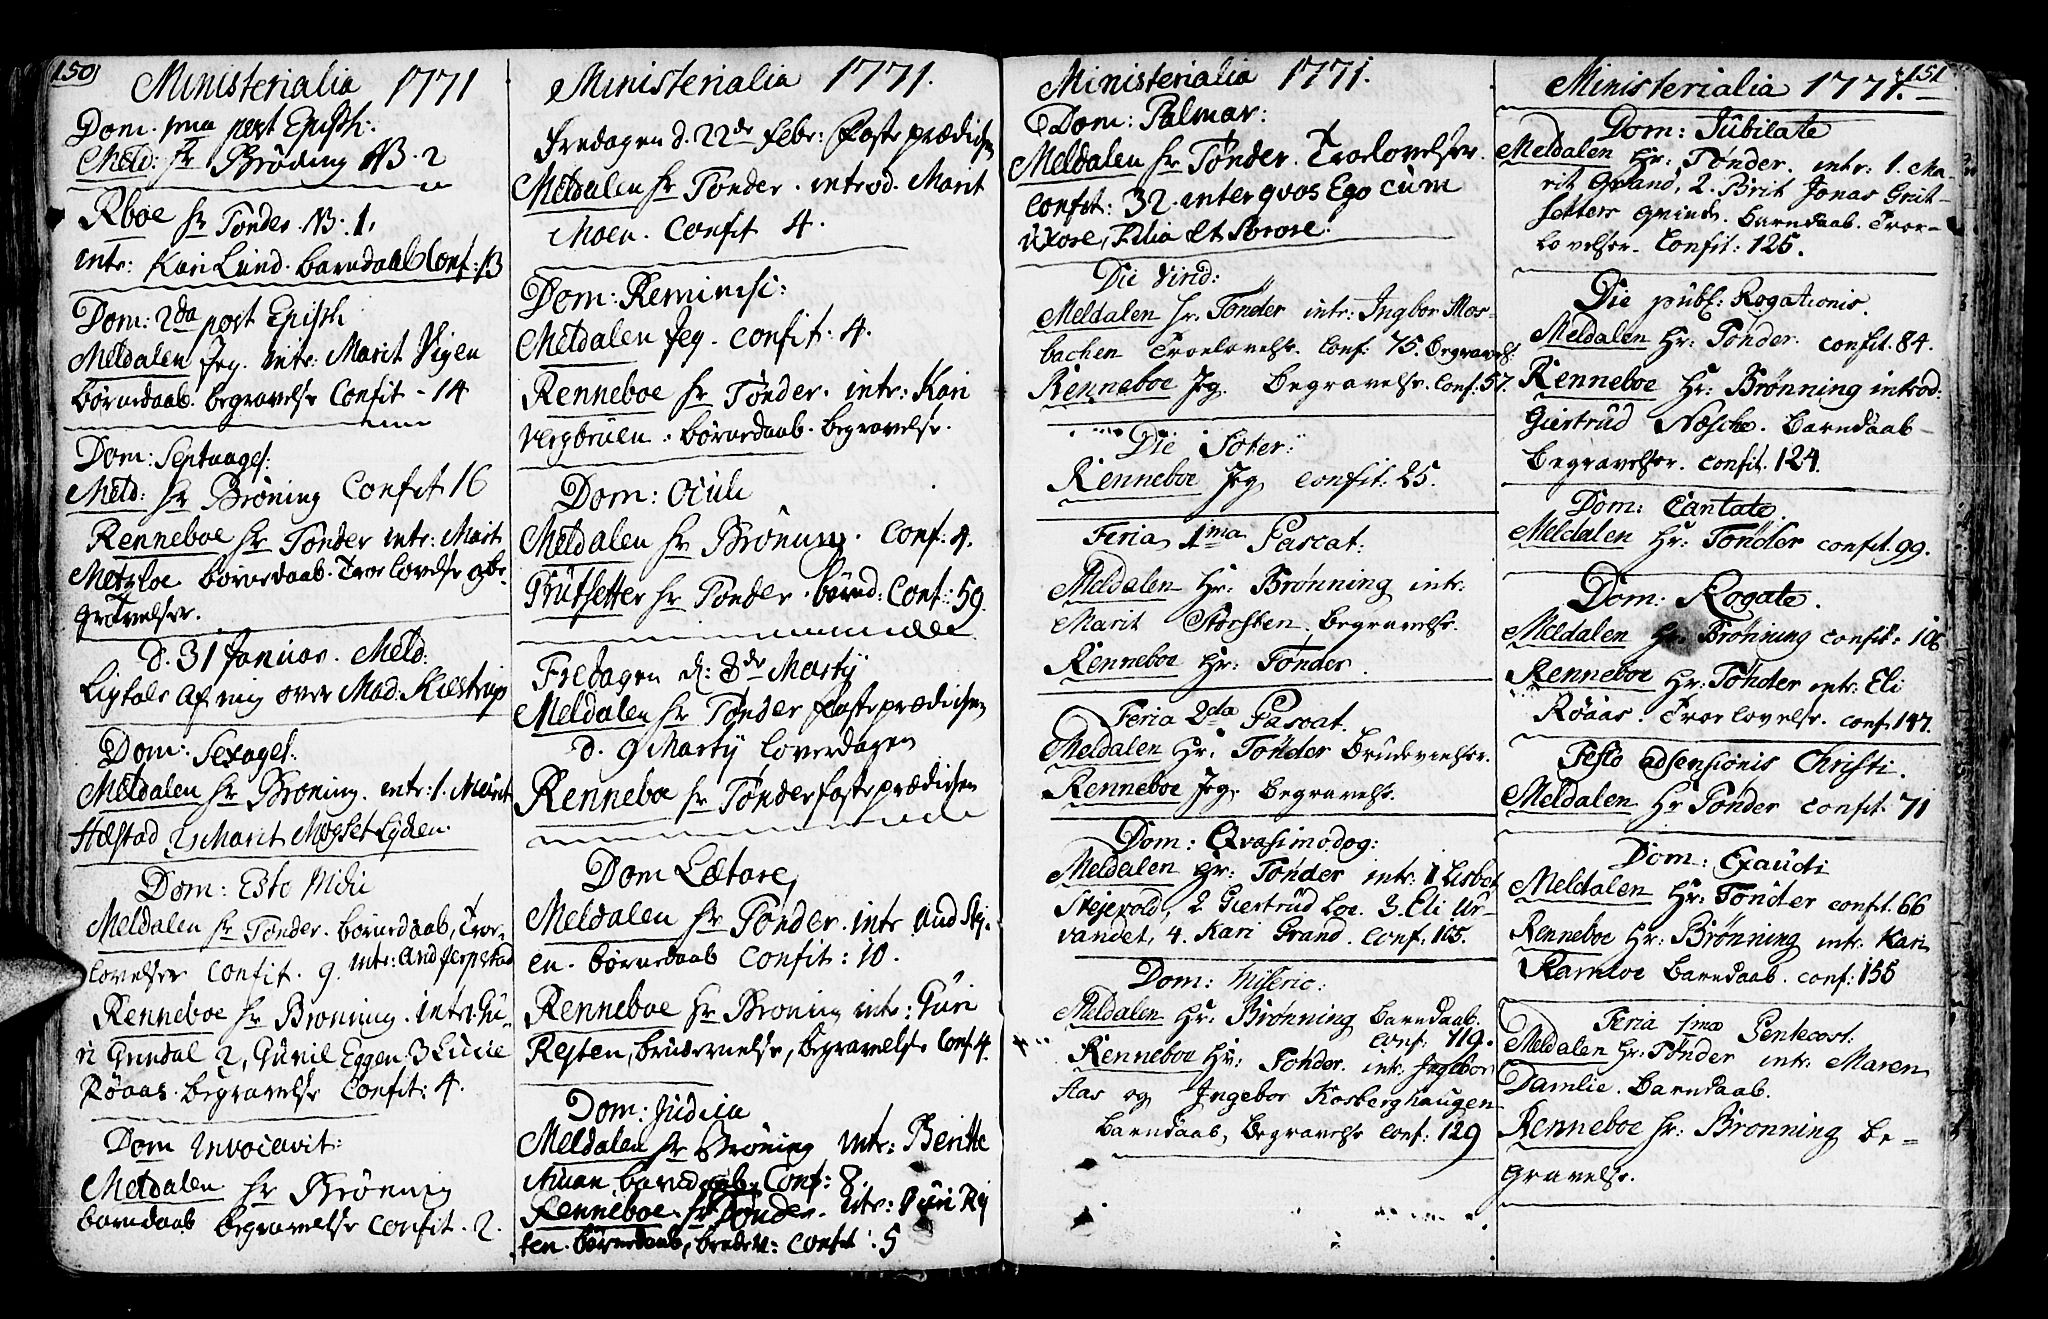 150
Ministerialia 1771
Dom. pma post Epiph:
Meld: hr Brøning NB. 2
Rboe hr Tønder. NB. 1.
intr: Kari Lund. barndaab Conf: 13
Dom: 2da post Epiph
Meldalen Jeg. intr: Marit Vigen
børnedaab. begravelse Confit - 14
Dom: Septuages:
Meld: hr Brøning Confit 16
Renneboe hr Tønder intr: Marit
Metzloe børnedaab. Troelovelse og be-
gravelser.
d. 31 Januar. Meld:
Ligtale af mig over Mad:
Dom: Sexages:
Meldalen hr Brøning. intr: 1. Marit
Hælstad 2 Marit
Dom: Esto Mihi
Meldalen hr Tønder. børnedaab, Troe-
lovelser Confit. 9 intr: And
Renneboe hr Brønning. intr: Gu-
ri Grindal 2, Guril Eggen 3 Lucie
Røaas. begravelse Confit: 4.
Dom Invocavit:
Meldalen hr Brøning
barndaab begravelse confit. 2.
Ministerialia 1771.
Fredagen d. 22de Febr: Fasteprædichen
Meldalen hr Tønder. introd. Marit
Moen. Confit 4.
Dom: Reminisc:
Meldalen Jeg. confit. 4.
Renneboe hr Tønder. intr: Kari
børnedaab. begravelse.
Dom: Oculi
Meldalen hr Brøning. Conf: 4.
Grütsetter hr Tønder. børned: Conf: 59.
Fredagen d: 8de Martÿ
Meldalen hr Tønder Fasteprædichen
d. 9 Martÿ Løverdagen
Renneboe hr Tønder fasteprædichen
Dom Lætare,
Meldalen hr Tønder. intr And Skj-
en. børnedaab Confit: 10.
Renneboe hr Brøning intr: Guri
Resten, brudevielse, begravelse Conf. 4.
Dom: Judica
Meldalen hr Brøning intr: Beritte
Aman barnedaab Conf: 8.
Renneboe. hr Tønder. intr: Guri Rej
ten. børnedaab, brudev: confit: 5
Ministerialia 1771.
Dom: Palmar:
Meldalen hr Tønder. Troelovelser.
Confit: 32. inter qvos Ego cum
Uxore, Filia et Sorore.
Die Virid:
Meldalen hr. Tønder intr: Ingbor Mos-
bachen Troelovelse. Conf: 75. begravels.
Renneboe Jeg. Begravelse. Conf: 57.
Die Soter:
Renneboe Jeg confit. 25.
Feria 1ma Pascat:
Meldalen Hr: Brønning intr.
Marit Storsten. begravelse.
Renneboe hr: Tønder.
Feria 2da Pascat.
Meldalen Hr: Tønder Brudevielser.
Renneboe Jeg. begravelse.
Dom: Qvasimodog:
Meldalen hr: Tønder intr: 1 Lisbet
Skjevold, 2. Giertrud Loe. 3. Eli Ur-
vandet, 4. Kari Grand. Conf: 165.
Dom: Miseric:
Meldalen Hr: Brønning Barndaab.
Conf: 119.
Renneboe Hr: Tønder. intr: Ingebor
Aas og Ingebor Kosberghaugen
Barndaab, Begravelse Conf: 129
151
Ministerialia 1771.
Dom: Jubilate
Meldalen Hr: Tønder. intr: 1. Ma-
rit Grand, 2. Brit Jonas Grit-
setters qvinde. Barndaab. Troe-
lovelser. Confit: 125.
Die publ: Rogationis.
Meldalen Hr: Tønder. confit. 84.
Renneboe Hr: Brønning introd:
Giertrud Næschæ. Barndaab
begravelser. confit. 124.
Dom: Cantate.
Meldalen Hr: Tønder confit. 99.
Dom: Rogate.
Meldalen Hr: Brønning confit: 106
Renneboe Hr: Tønder intr: Eli
Røaas. Troelovelse. conf: 147.
Festo adsensionis Christi.
Meldalen Hr Tønder confit. 71
Dom: Exaudi
Meldalen Hr: Tønder confit. 66
Renneboe Hr: Brønning intr. Kari
Ramloe Barndaab. conf: 155
Feria 1ma Pentecost:
Meldalen Hr: Tønder intr: Maren
Damlie. Barndaab.
Renneboe Hr: Brønning be-
gravelse.